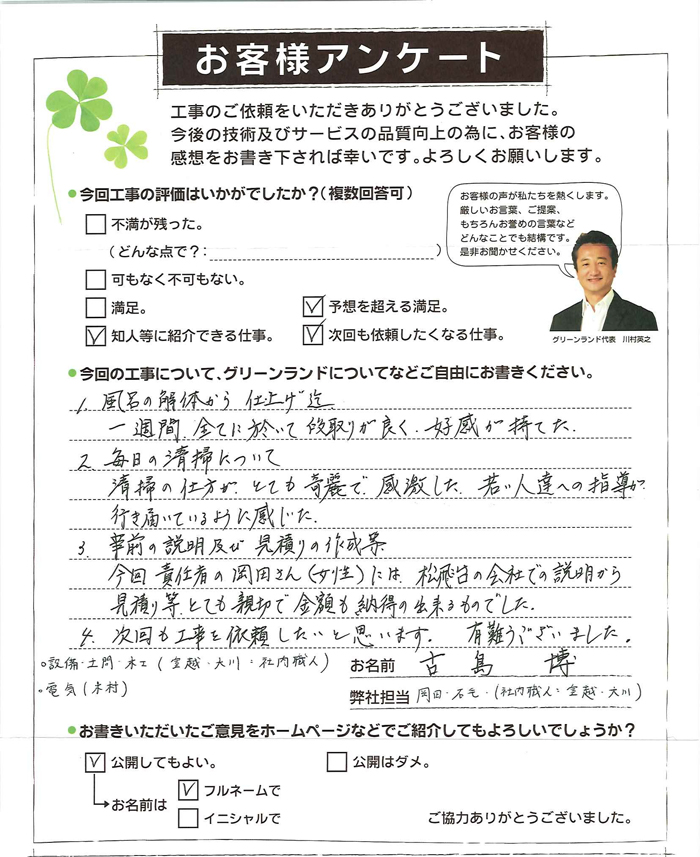 お客様アンケート
工事のご依頼をいただきありがとうございました。
今後の技術及びサービスの品質向上の為に、お客様の
感想をお書き下されば幸いです。よろしくお願いします。
●今回工事の評価はいかがでしたか?(複数回答可)
不満が残った。
(どんな点で?: )
可もなく不可もない。
満足。
予想を超える満足。
知人等に紹介できる仕事。
次回も依頼したくなる仕事。
お客様の声が私たちを熱くします。
厳しいお言葉、ご提案、
もちろんお誉めの言葉など
どんなことでも結構です。
是非お聞かせください。
グリーンランド代表 川村英之
●今回の工事について、グリーンランドについてなどご自由にお書きください。
1. 風呂の解体から 仕上げ迄
一週間、全てに於いて 段取りが良く、好感が持てた。
2. 毎日の清掃について
清掃の仕方が、とても 奇麗で 感激した。若い人達への指導が
行き届いているように感じた。
3. 事前の説明及び 見積りの作成等
今回 責任者の岡田さん(女性)には、松飛台の会社での説明から
見積り等、とても親切で 金額も納得の出来るものでした。
4. 次回も工事を依頼したいと思います。 有難うございました。
○設備・土間・木工(宮越・大川:社内職人)
○電気(木村)
お名前 古島 博
弊社担当 岡田・石毛・(社内職人:宮越・大川)
●お書きいただいたご意見をホームページなどでご紹介してもよろしいでしょうか?
公開してもよい。
公開はダメ。
お名前は
フルネームで
イニシャルで
ご協力ありがとうございました。